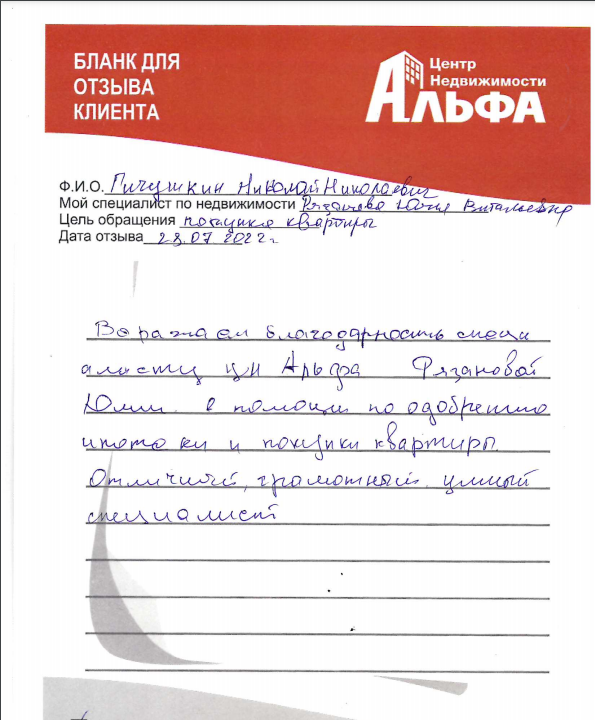 БЛАНК ДЛЯ
ОТЗЫВА
КЛИЕНТА
Центр
Недвижимости
АЛЬФА
Ф.И.О. Пичушкин Николай Николаевич
Мой специалист по недвижимости Рязанова Юлия Витальевна
Цель обращения покупка квартиры
Дата отзыва 28.07 2022 г
Выражаем благодарность специ
алисту ЦН Альфа Рязановой
Юлии в помощи по одобрению
ипотеки и покупки квартиры.
Отличный, грамотный умный
специалист